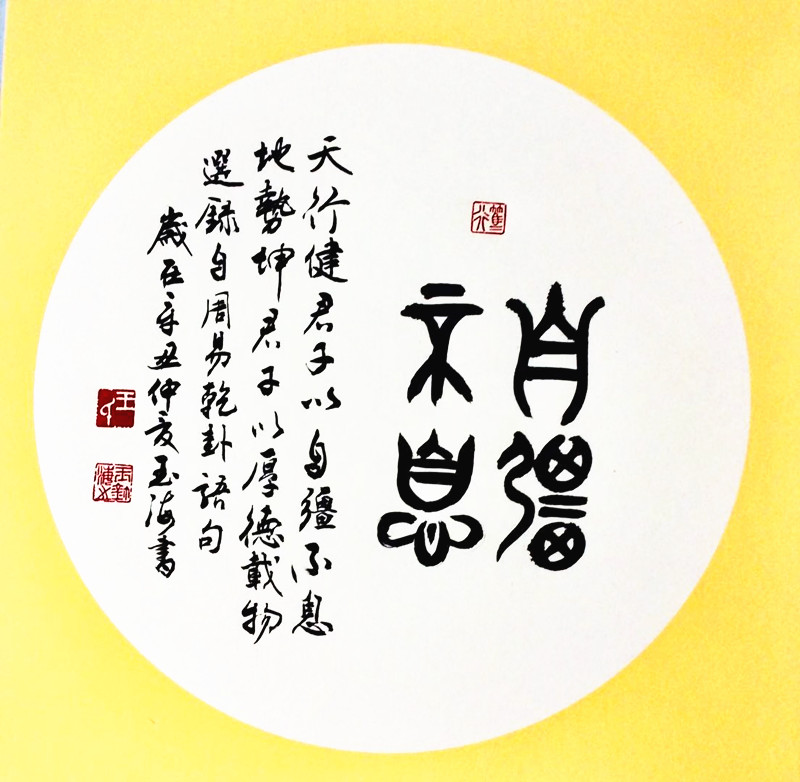 自彊
不息
天行健君子以自彊不息
地勢坤君子以厚德載物
選録自周易乾卦語句
歲在辛丑仲夏玉海書